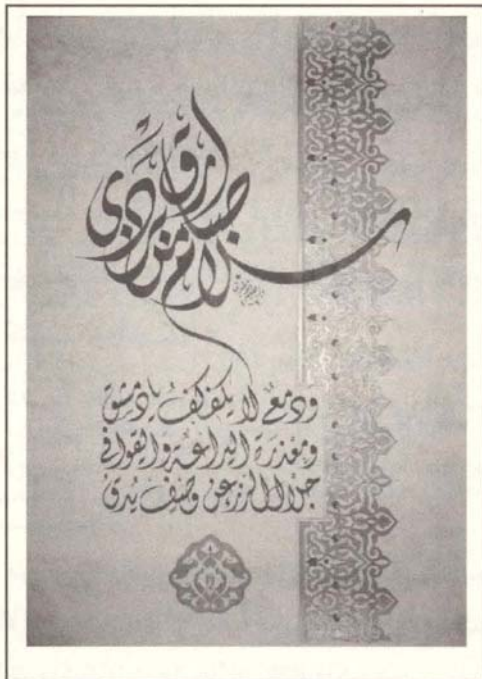 سلام من صبا بردى ارق
ودمع لا يكفكف يا دمشق
ومعذرة اليراعة والقوافي
جلال الرزء عن وصف يدق